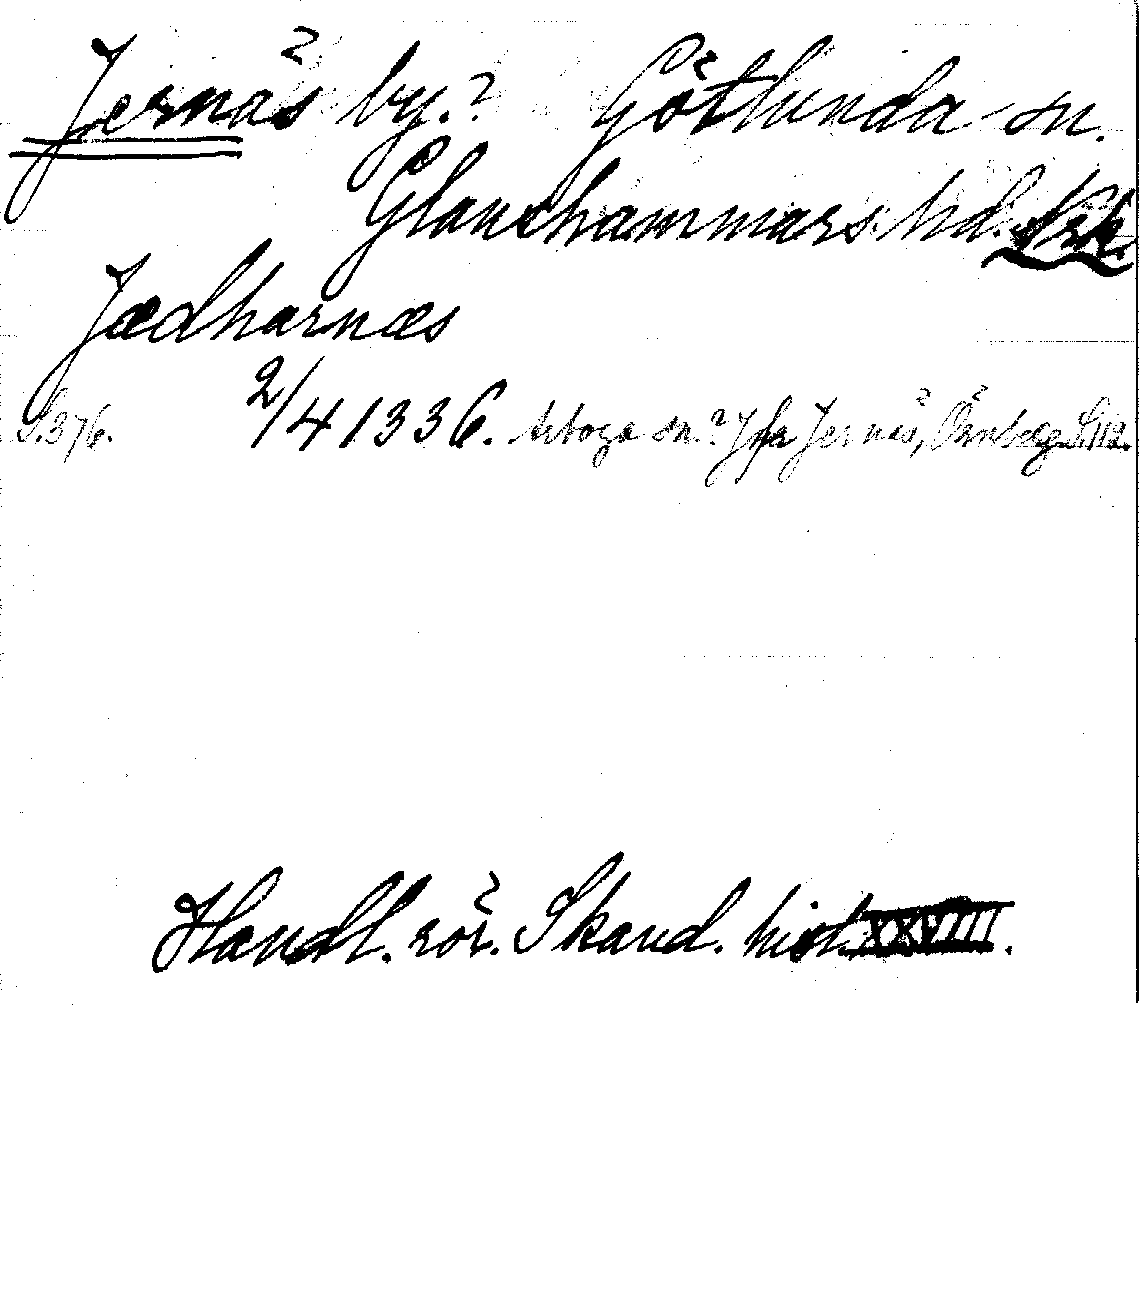 Jernäs by.? Götlunda sn.
Glanshammars hd. Ark.
Jædharnæs
S.376. 2/4 1336. Arboga sn.? Jfr Jernäs,
Handl. rör. Skand. hist. XXVIII.